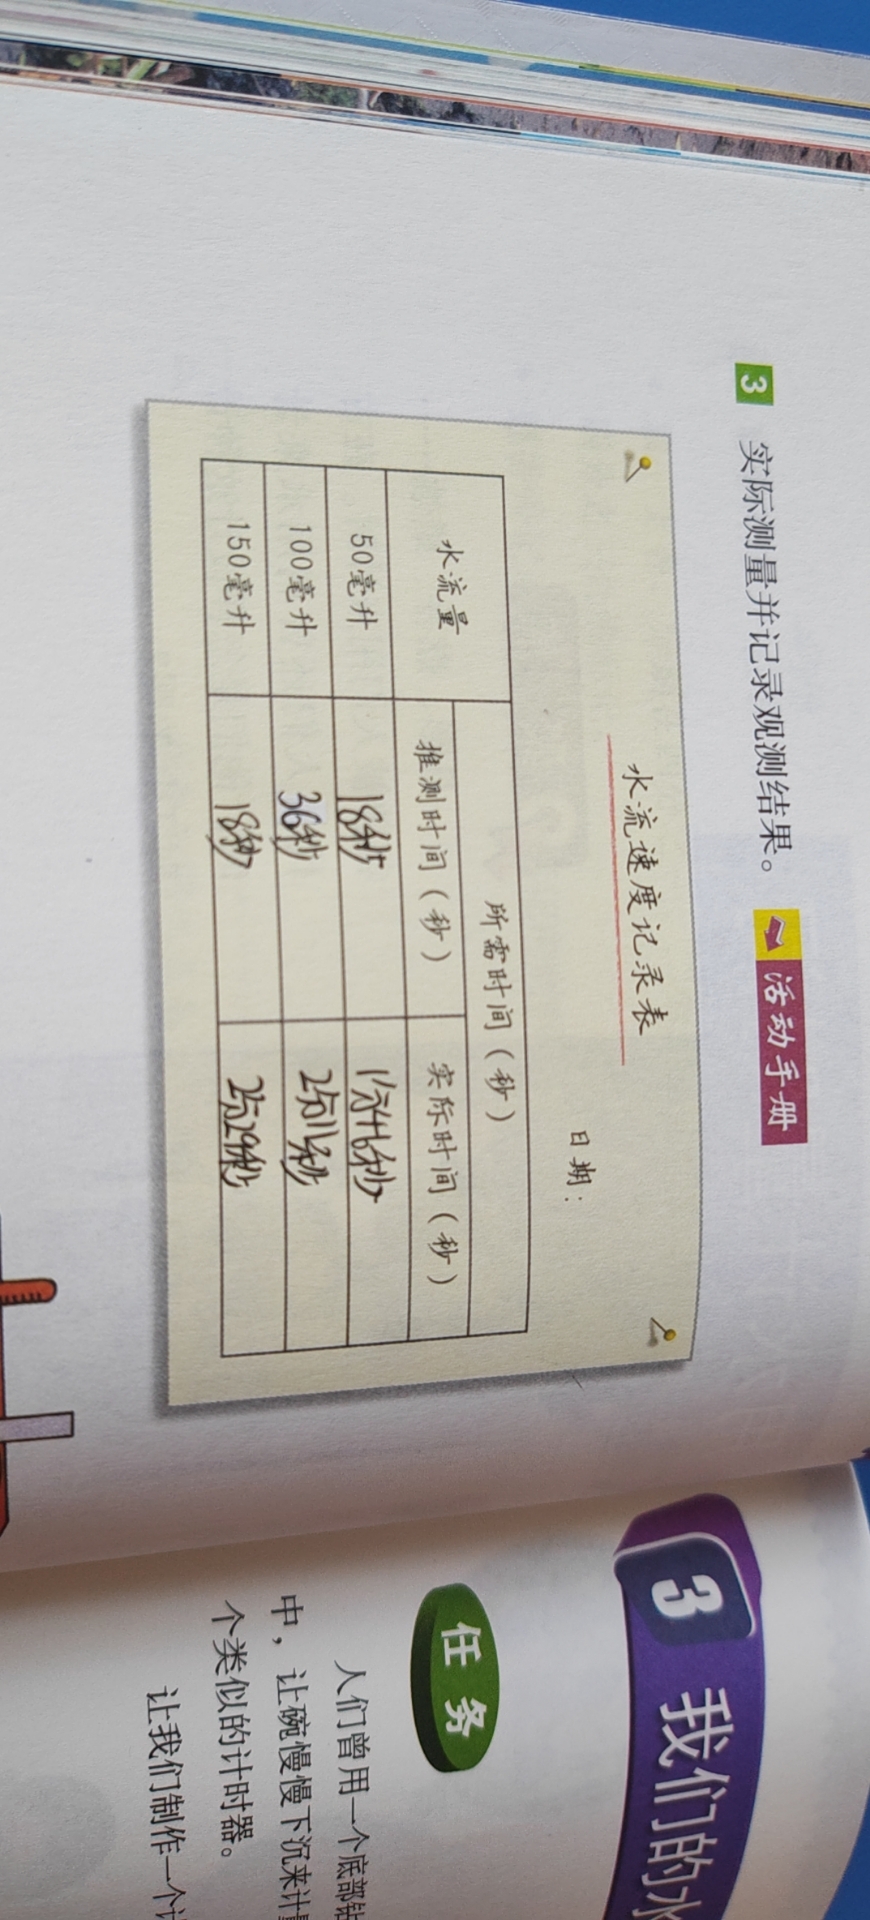 3 实际测量并记录观测结果。 活动手册
水流速度记录表
日期：
水流量 所需时间（秒）
推测时间（秒） 实际时间（秒）
50毫升 18秒 1分46秒
100毫升 36秒 2分11秒
150毫升 18秒 2分29秒
3 我们的水
任务
人们曾用一个底部钻
中，让碗慢慢下沉来计
个类似的计时器。
让我们制作一个